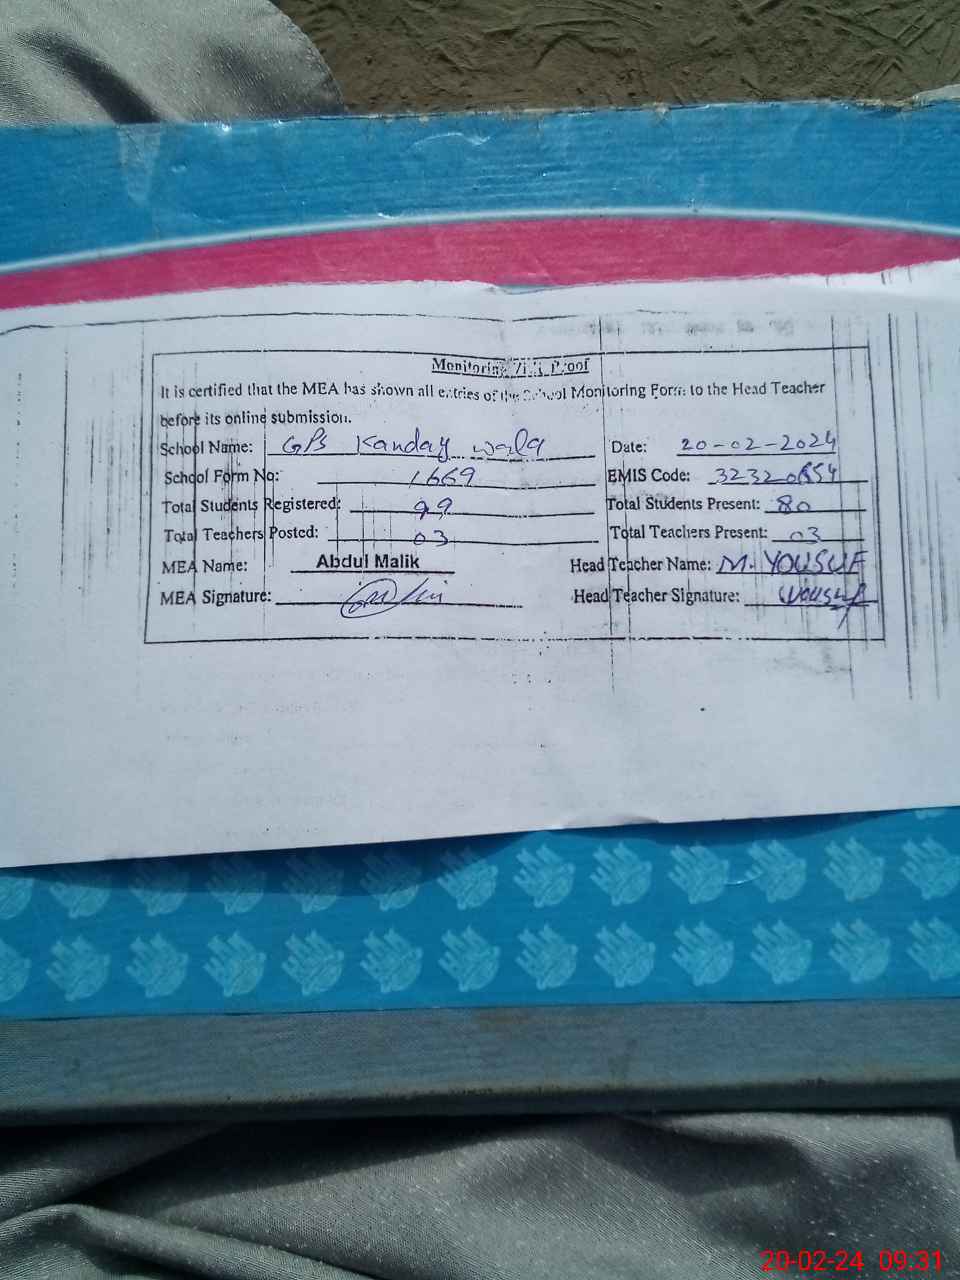 Monitoring Visit Proof
It is certified that the MEA has shown all entries of the School Monitoring Form to the Head Teacher
before its online submission.
School Name: GPS Kanday wala Date: 20-02-2024
School Form No: 1669 EMIS Code:
Total Students Registered: 99 Total Students Present: 80
Total Teachers Posted: 03 Total Teachers Present: 03
MEA Name: Abdul Malik Head Teacher Name: M. YOUSUF
MEA Signature: Head Teacher Signature: Yousuf
20-02-24 09:31